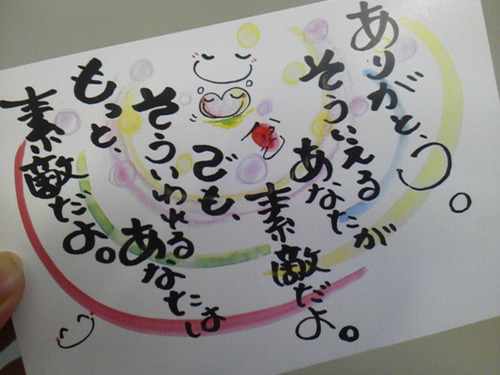 ありがとう。
そういえる
あなたが
素敵だよ。
でも、
そういわれる
あなたは
もっと、
素敵だよ。